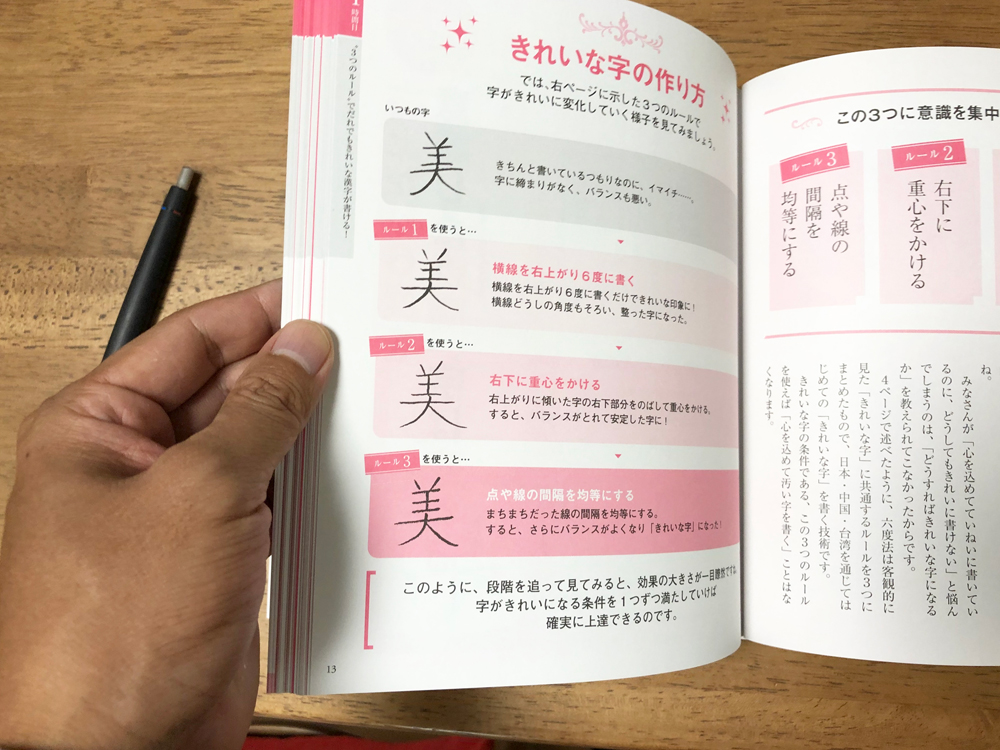 時間目
"3つのルール"でだれでもきれいな漢字が書ける!
きれいな字の作り方
では、右ページに示した3つのルールで
字がきれいに変化していく様子を見てみましょう。
いつもの字
美
きちんと書いているつもりなのに、イマイチ……。
字に締まりがなく、バランスも悪い。
ルール1 を使うと…
美
横線を右上がり6度に書く
横線を右上がり6度に書くだけできれいな印象に!
横線どうしの角度もそろい、整った字になった。
ルール2 を使うと…
美
右下に重心をかける
右上がりに傾いた字の右下部分をのばして重心をかける。
すると、バランスがとれて安定した字に!
ルール3 を使うと…
美
点や線の間隔を均等にする
まちまちだった線の間隔を均等にする。
すると、さらにバランスがよくなり「きれいな字」になった!
このように、段階を追って見てみると、効果の大きさが一目瞭然ですね。
字がきれいになる条件を1つずつ満たしていけば
確実に上達できるのです。
13
この3つに意識を集中
ルール2
右下に
重心をかける
ルール3
点や線の
間隔を
均等にする
ね。
みなさんが「心を込めてていねいに書いてい
るのに、どうしてもきれいに書けない」と悩ん
でしまうのは、「どうすればきれいな字になる
か」を教えられてこなかったからです。
4ページで述べたように、六度法は客観的に
見た「きれいな字」に共通するルールを3つに
まとめたもので、日本・中国・台湾を通じては
じめての「きれいな字」を書く技術です。
きれいな字の条件である、この3つのルール
を使えば「心を込めて汚い字を書く」ことはな
くなります。